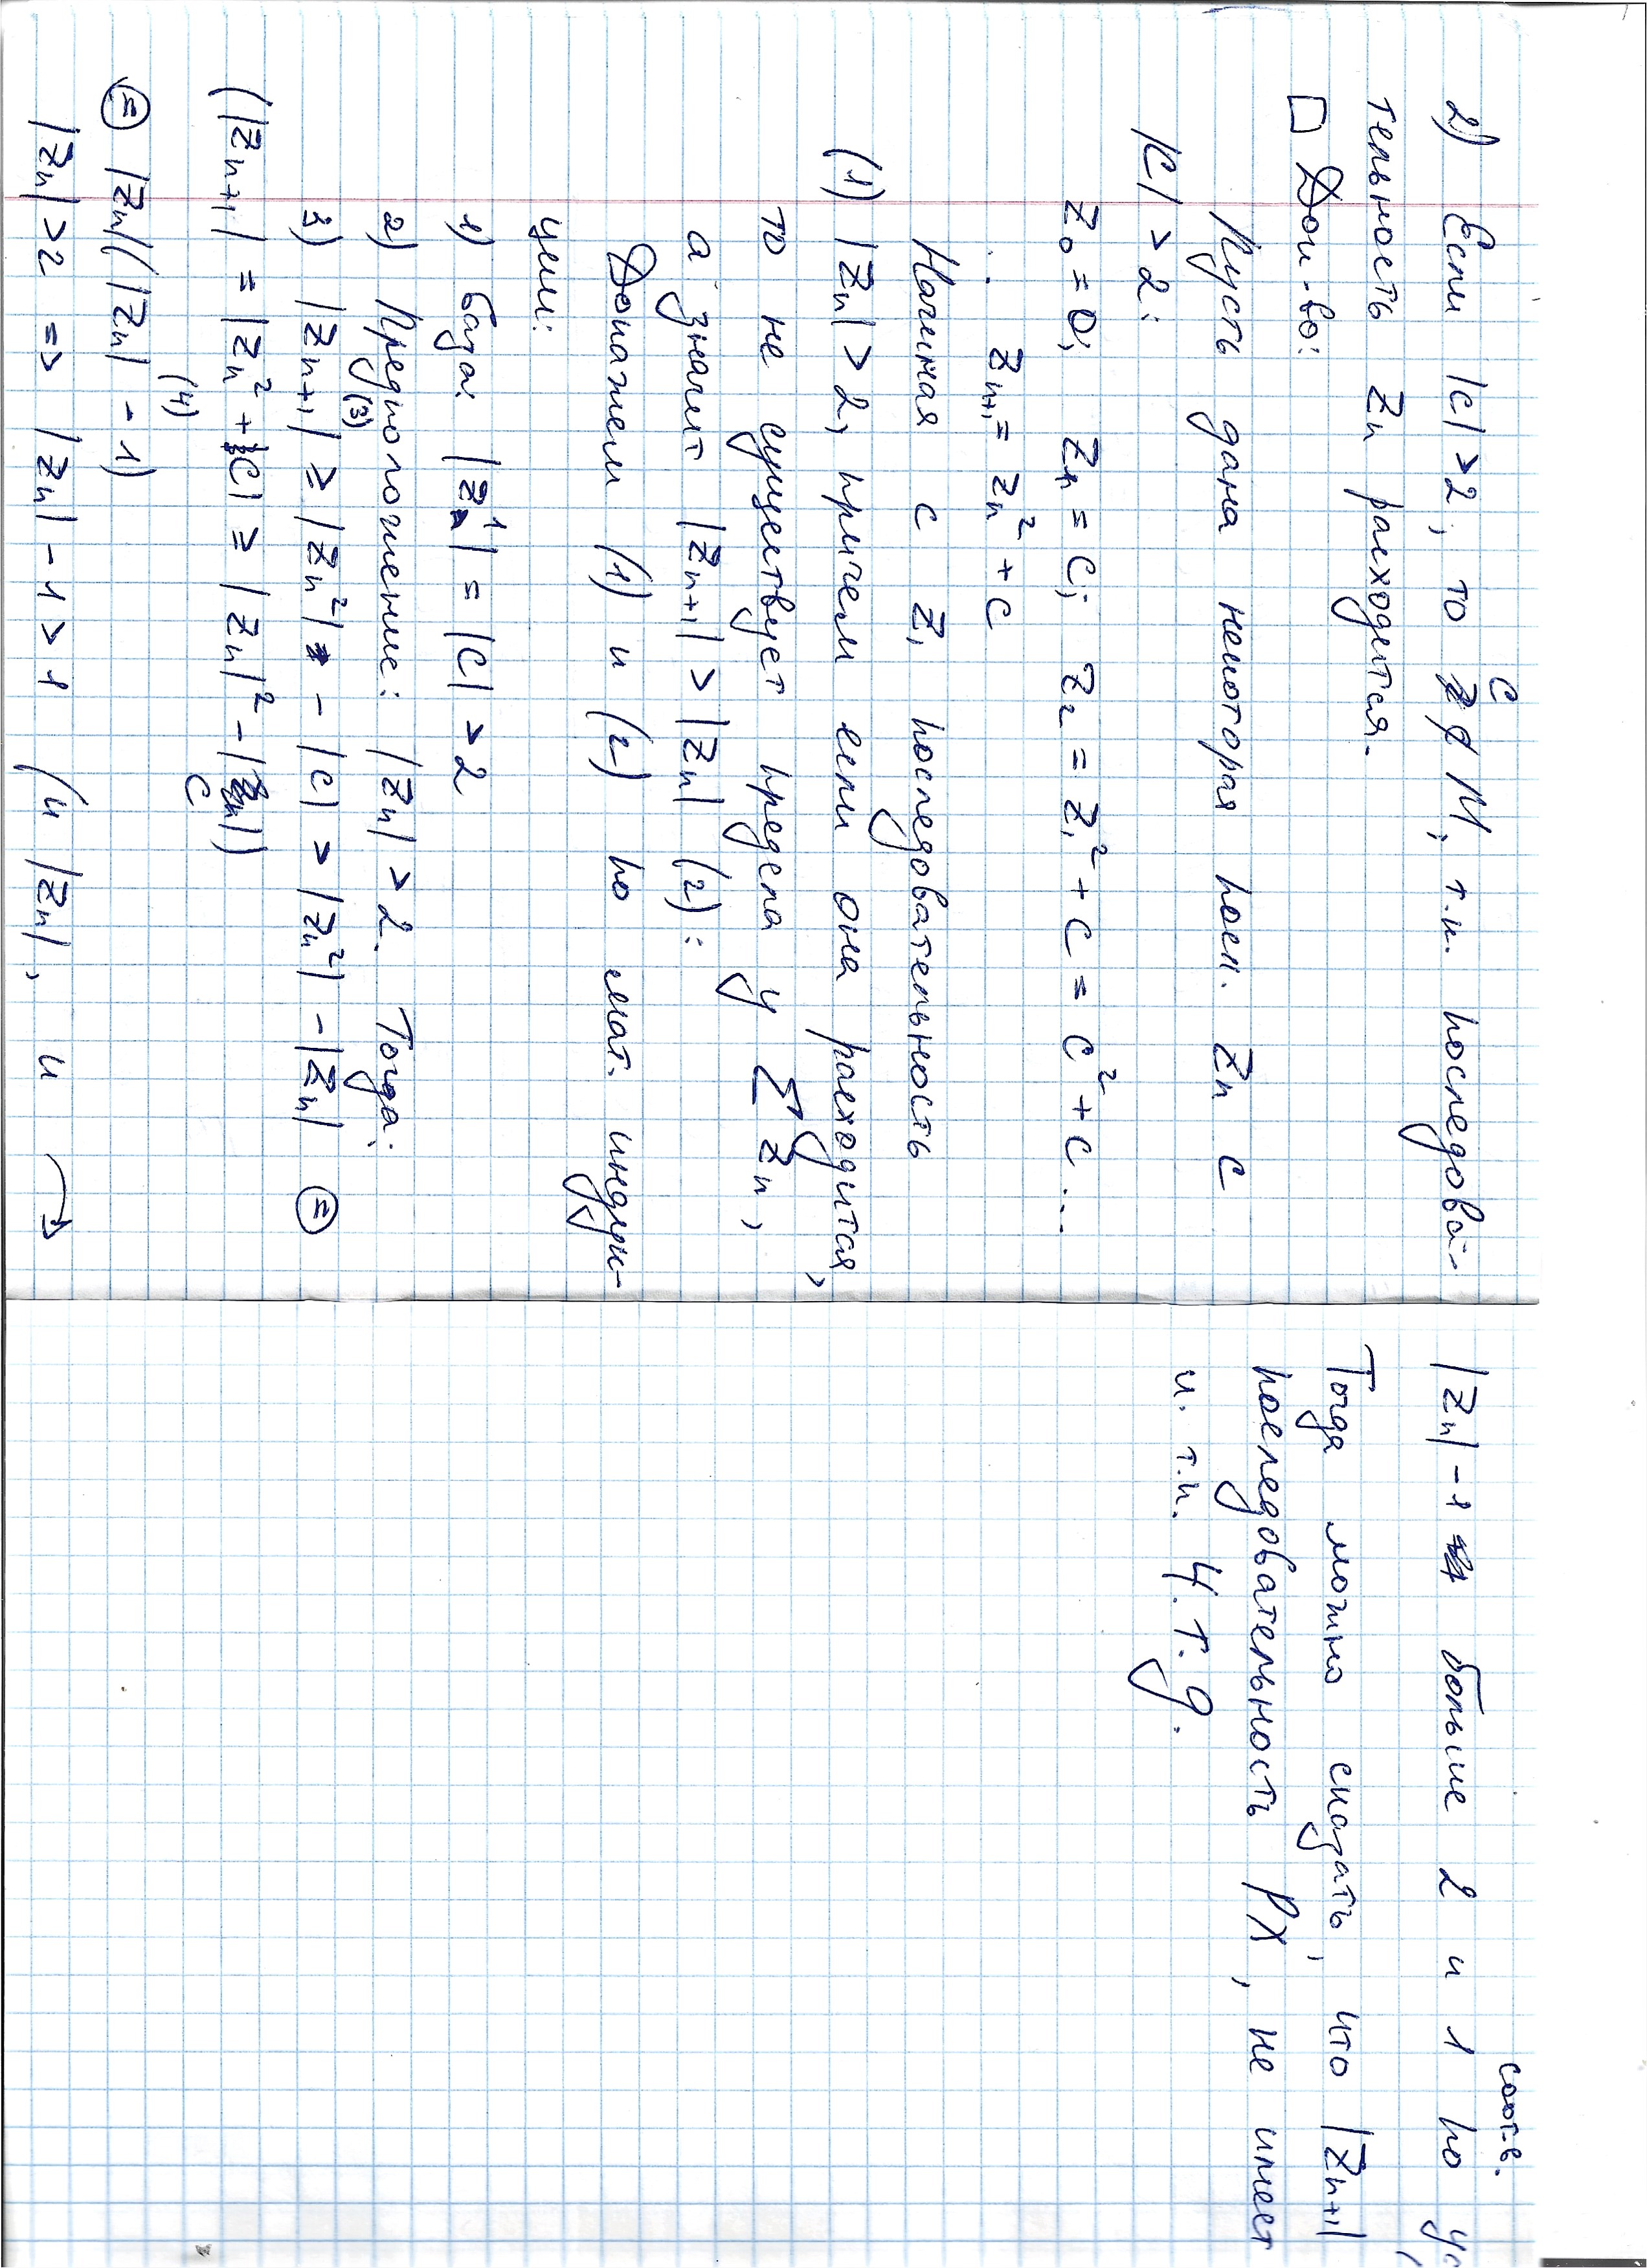 2) Если |c| > 2, то c ∉ M, т.к. последова-
тельность Zn расходится.
□ Док-во:
Пусть дана некоторая посл. Zn с
|c| > 2:
Z₀ = 0; Z₁ = c; Z₂ = Z₁² + c = c² + c ...
Zn+1 = Zn² + c
Начиная с Z₁ последовательность
(1) |Zn| > 2, причем если она расходится,
то не существует предела у Σ Zn,
а значит |Zn+1| > |Zn| (2):
Докажем (1) и (2) по мат. индук-
ции:
1) база: |Z₁| = |c| > 2
2) Предположение: |Zn| > 2. Тогда:
3) |Zn+1| ≥ (3) |Zn²| - |c| > |Zn²| - |Zn| ⊜
(|Zn+1| = |Zn² + c| ≥ |Zn|² - |c|)
(4)
⊜ |Zn|(|Zn| - 1)
|Zn| > 2 => |Zn| - 1 > 1 (и |Zn|, и
|Zn| - 1 больше 2 и 1 соотв. по
Тогда можно сказать, что |Zn+1|
последовательность РХ, не имеет
и. т.к. Ч.т.д.